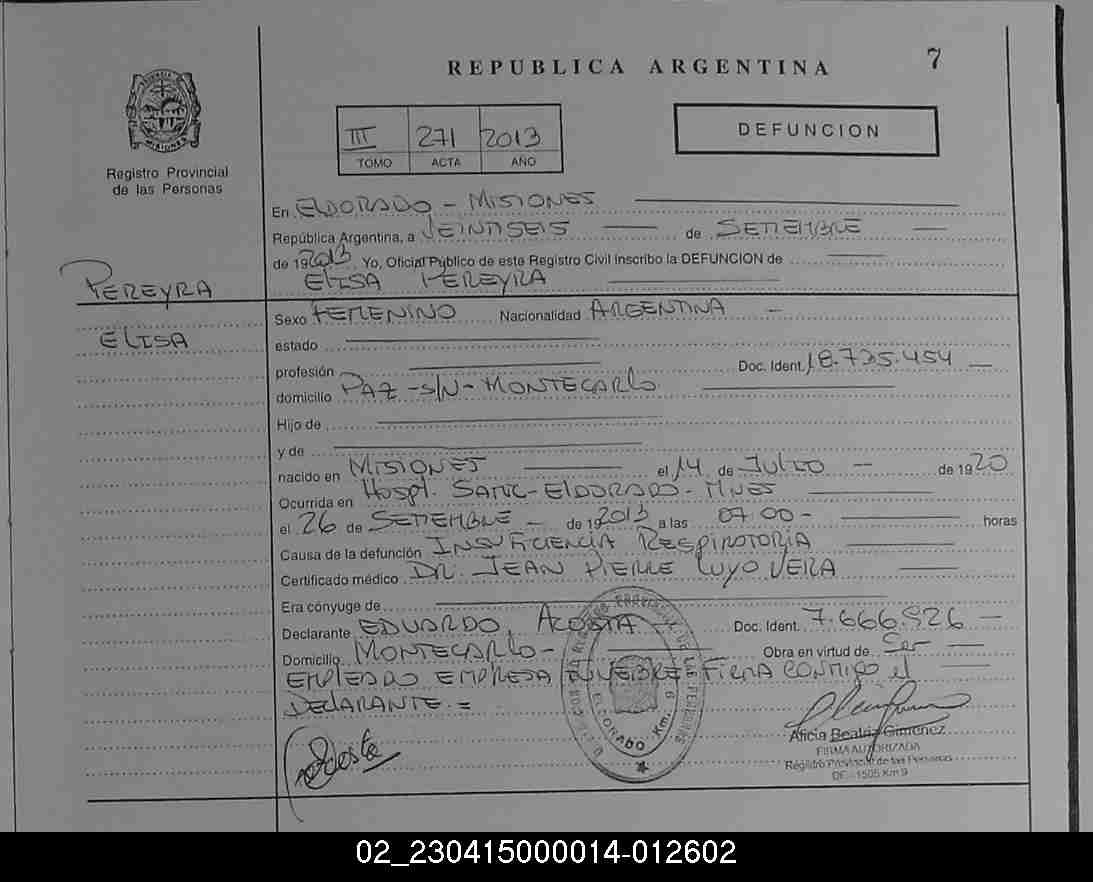 REPUBLICA ARGENTINA
7
III 271 2013
TOMO ACTA AÑO
DEFUNCION
Registro Provincial
de las Personas
En ELDORADO - MISIONES
República Argentina, a VEINTISEIS de SETIEMBRE
de 19 2013 Yo, Oficial Público de este Registro Civil inscribo la DEFUNCION de
ELISA PEREYRA
PEREYRA
ELISA
Sexo FEMENINO Nacionalidad ARGENTINA
estado
profesión Doc. Ident. 18.735.454
domicilio PAZ - S/N - MONTECARLO
Hijo de
y de
nacido en MISIONES el 14 de JULIO de 1920
Ocurrida en Hospl. SAMIC - ELDORADO - MNES
el 26 de SETIEMBRE de 19 2013 a las 07:00 - horas
Causa de la defunción INSUFICIENCIA RESPIROTORIA
Certificado médico DR. JEAN PIERRE LUYO VERA
Era cónyuge de
Declarante EDUARDO, ACOSTA Doc. Ident. 7.666.926
Domicilio MONTECARLO - Obra en virtud de Ser
EMPLEADO EMPRESA FUNEBRE FIRMA CONMIGO el
DECLARANTE =
ELDORADO Km. 9
Alicia Beatriz Gimenez
FIRMA AUTORIZADA
Registro Provincial de las Personas
OF. - 1505 Km 9
02_230415000014-012602